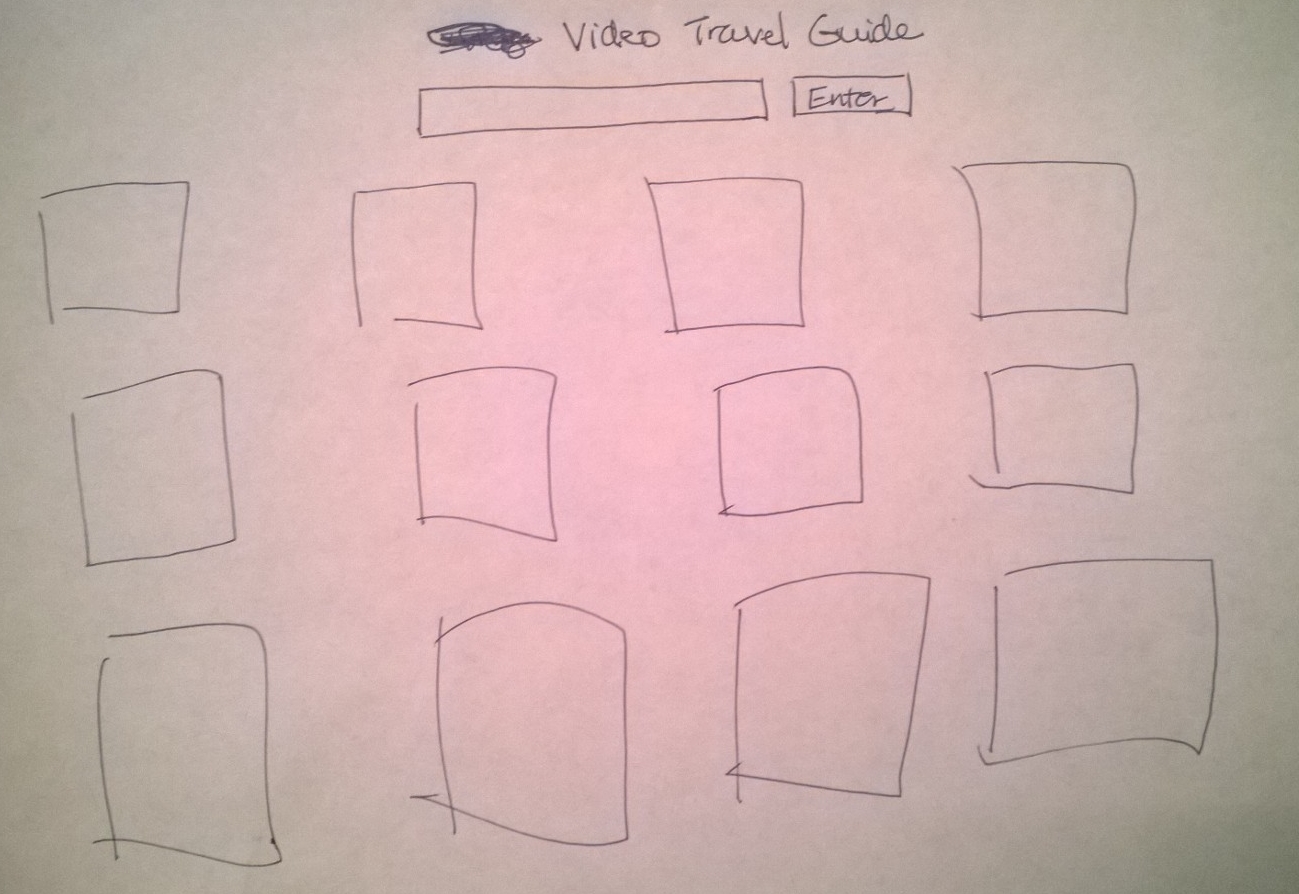 Video Travel Guide
Enter